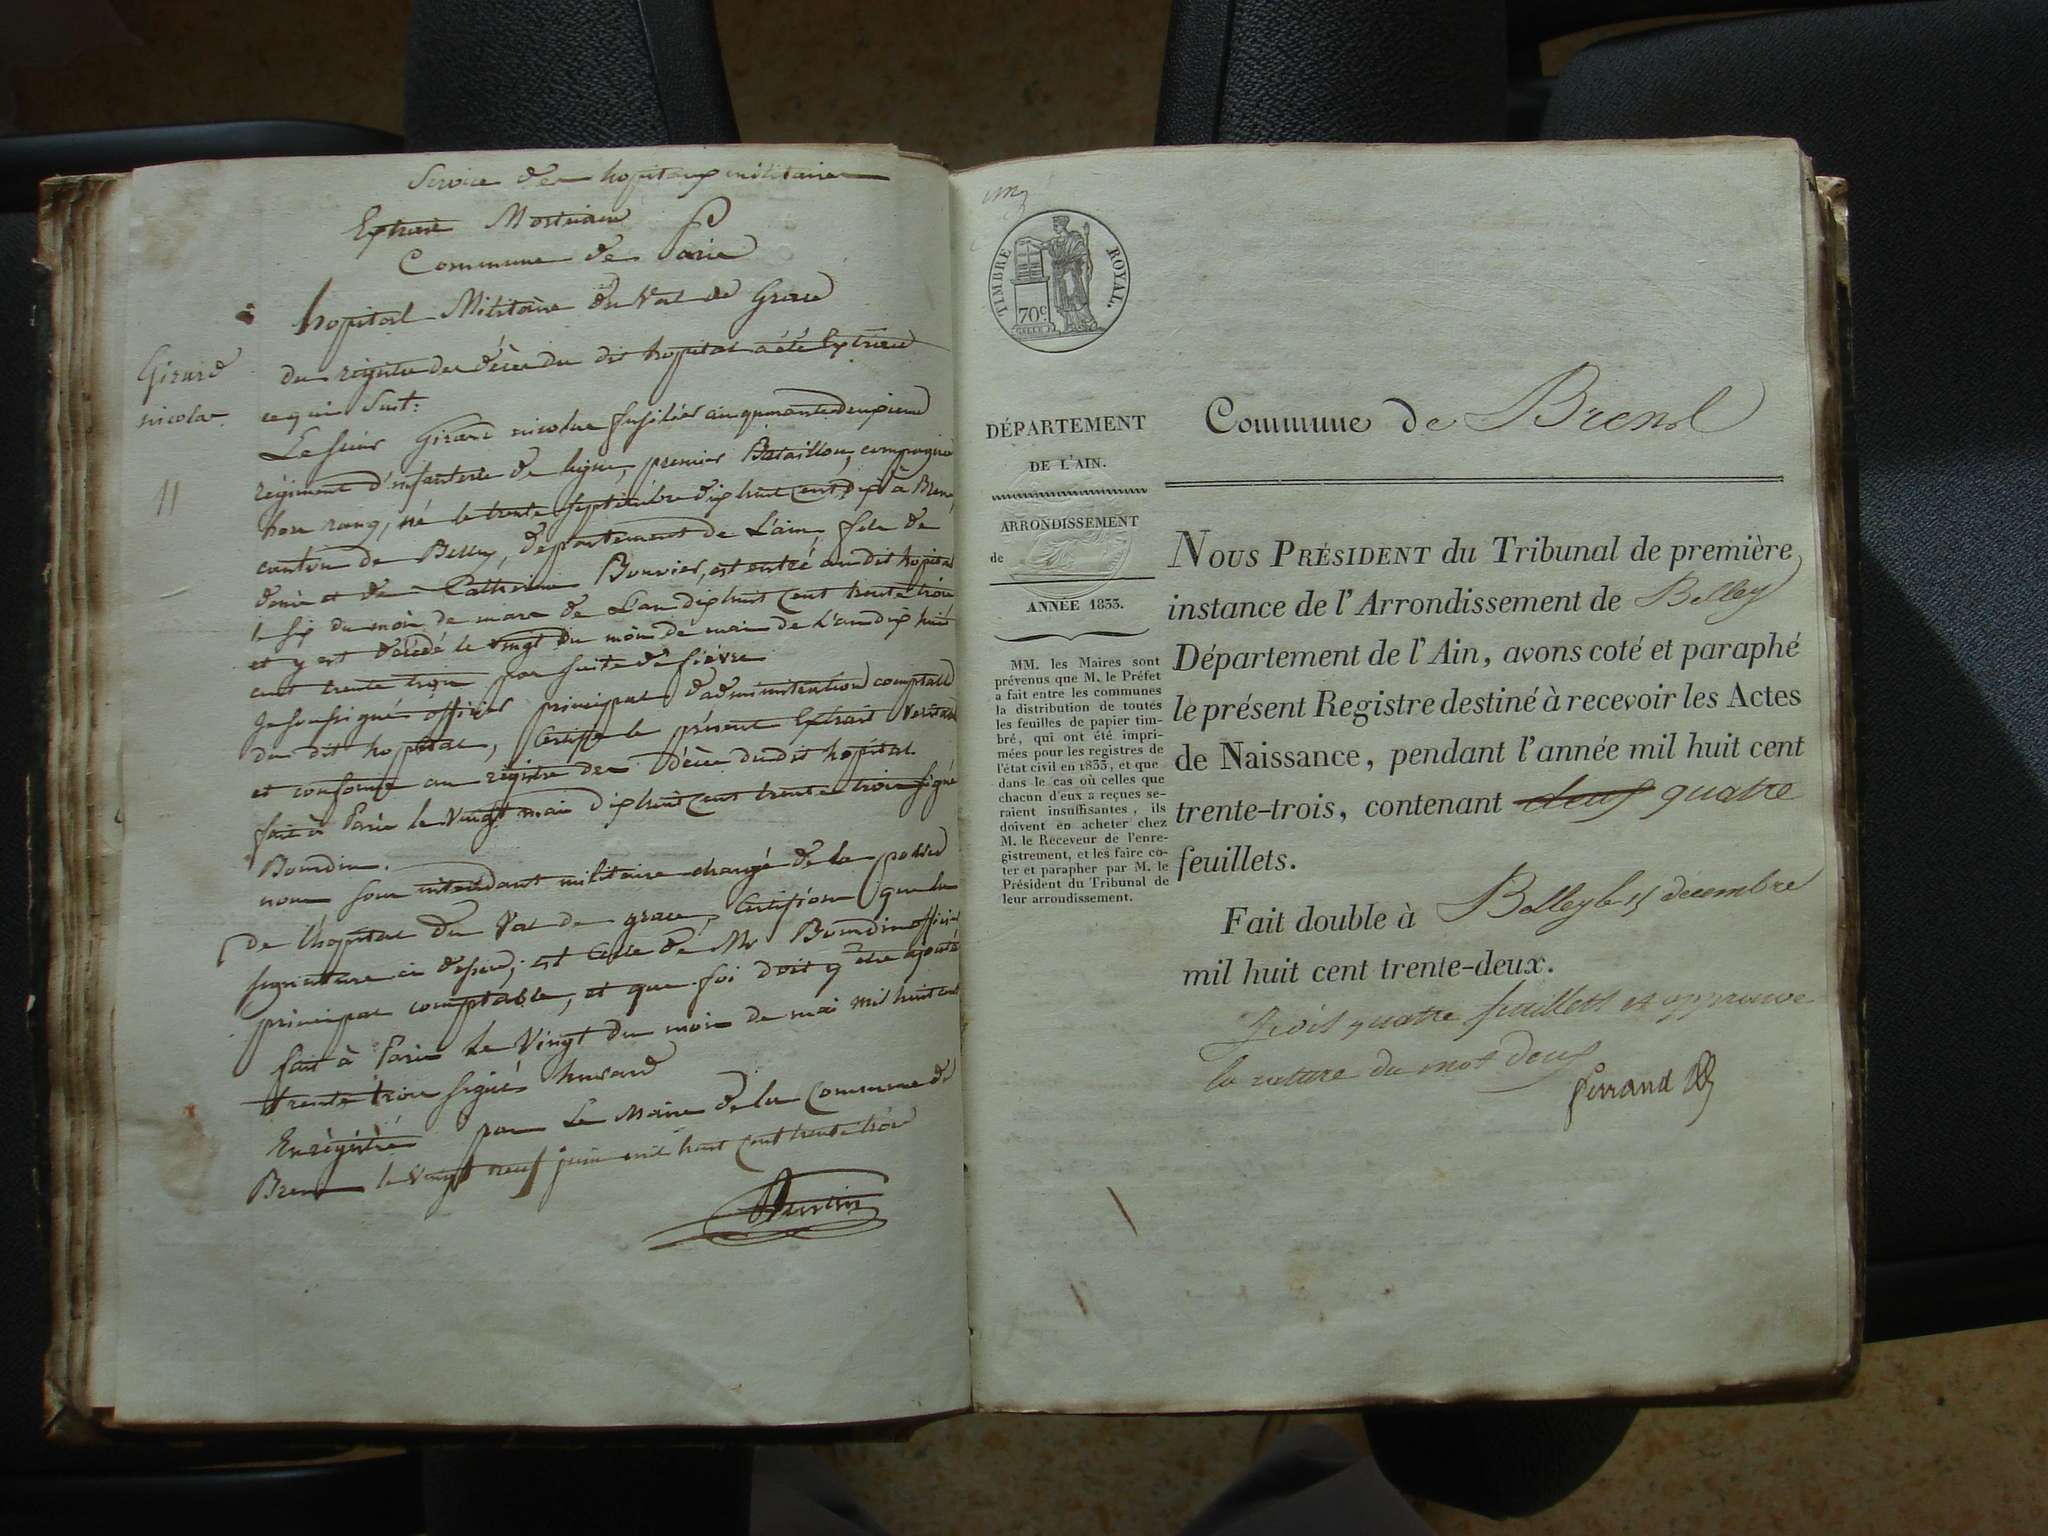 Service des hopitaux militaires
Extrait Mortuaire
Commune de Paris
hopital Militaire du Val de Grace
Girard
nicolas
11
du régistre des décès du dit hopital a été Extrait
ce qui suit:
Le sieur Girard nicolas fusilier au quarantedeuxieme
régiment d'infanterie de ligne, premier Bataillon, compagnie
hors rang, né le trente septembre dix huit cent dix à Brens,
canton de Belley, département de L'ain, fils de
denis et de Catherine Bouvier, est entré au dit hopital
le six du mois de mars de L'an dix huit cent trente trois
et y est décédé le vingt du mois de mai de L'an dix huit
cent trente trois par suite de fièvre
Je soussigné officier principal d'administration comptable
du dit hopital, certifie le présent Extrait véritable
et conforme au régistre des décès du dit hopital.
fait à Paris le vingt mai dix huit cent trente trois signé
Bourdin.
nous sous intendant militaire chargé de la police
de l'hopital du Val de grace, certifions que la
signature ci dessus, est celle de Mr Bourdin officier
principal comptable, et que foi doit y être ajouté
fait à Paris le vingt du mois de mai mil huit cent
trente trois signé
Enrégistré par Le Maire de la Commune de
Brens le vingt neuf juin mil huit cent trente trois
TIMBRE ROYAL.
70c
DÉPARTEMENT
DE L'AIN.
ARRONDISSEMENT
de
ANNÉE 1833.
MM. les Maires sont
prévenus que M. le Préfet
a fait entre les communes
la distribution de toutes
les feuilles de papier tim-
bré, qui ont été impri-
mées pour les registres de
l'état civil en 1833, et que
dans le cas où celles que
chacun d'eux a reçues se-
raient insuffisantes, ils
doivent en acheter chez
M. le Receveur de l'enre-
gistrement, et les faire co-
ter et parapher par M. le
Président du Tribunal de
leur arrondissement.
Commune de Brens
NOUS PRÉSIDENT du Tribunal de première
instance de l'Arrondissement de Belley
Département de l'Ain, avons coté et paraphé
le présent Registre destiné à recevoir les Actes
de Naissance, pendant l'année mil huit cent
trente-trois, contenant deux quatre
feuillets.
Fait double à Belley le 15 décembre
mil huit cent trente-deux.
quatre feuillets et approuvé
la rature du mot deux
Ferrand